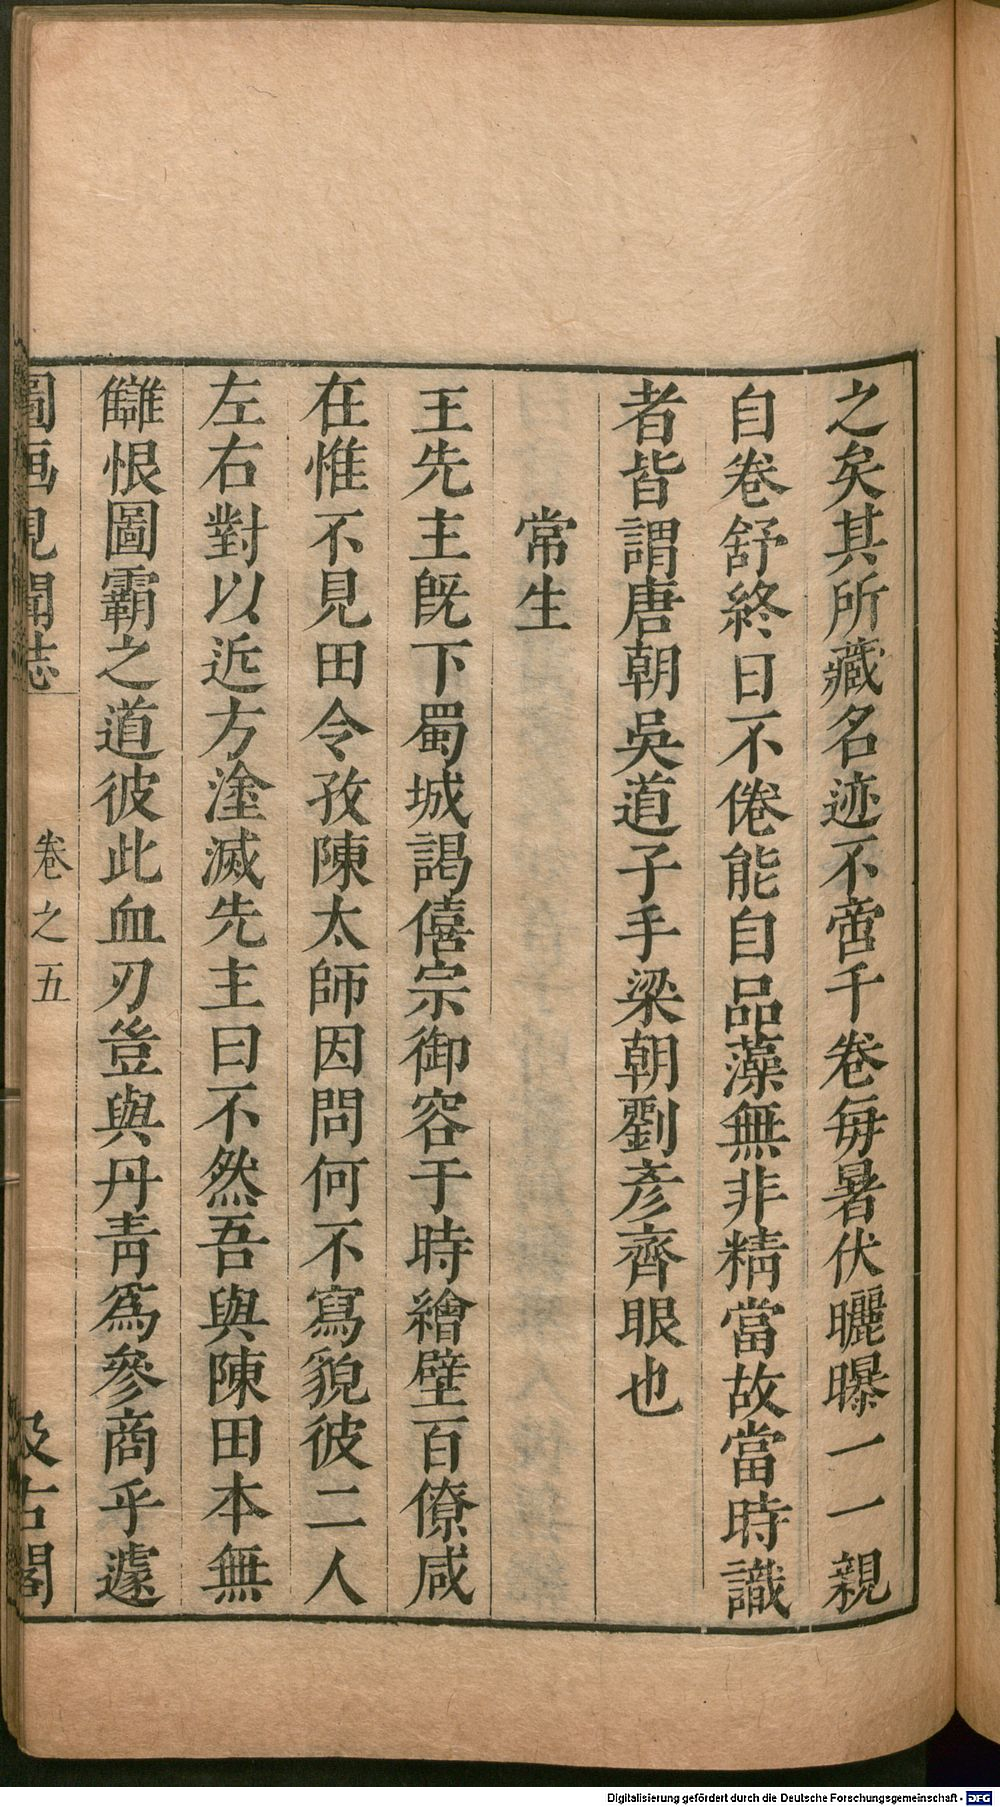 之矣其所藏名迹不啻千卷每暑伏曬曝一一親
自卷舒終日不倦能自品藻無非精當故當時識
者皆謂唐朝吳道子手梁朝劉彥齊眼也
常生
王先主旣下蜀城謁僖宗御容于時繪壁百僚咸
在惟不見田令孜陳太師因問何不寫貌彼二人
左右對以近方塗滅先主曰不然吾與陳田本無
讎恨圖霸之道彼此血刃豈與丹靑爲參商乎遽
圖画見聞誌 卷之五 汲古閣
Digitalisierung gefördert durch die Deutsche Forschungsgemeinschaft - DFG